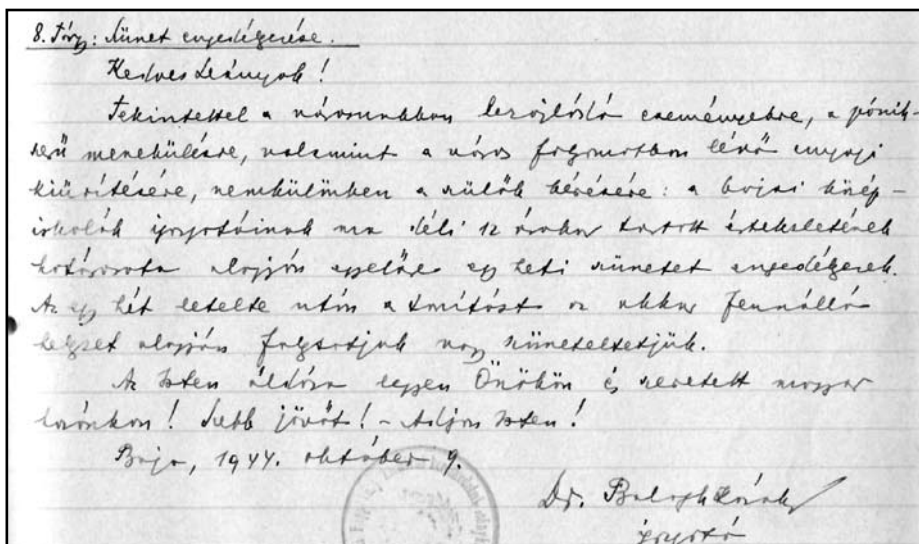 8. Tárgy: Szünet engedélyezése.
Kedves Leányok!
Tekintettel a városunkban lezajlódó eseményekre, a pánik-
szerű menekülésre, valamint a város folyamatban lévő anyagi
kiürítésére, nemkülönben a szülők kérésére: a bajai közép-
iskolák igazgatóinak ma déli 12 órakor tartott értekezletének
határozata alapján egyelőre egy heti szünetet engedélyezek.
Az egy hét letelte után a tanítást az akkor fennálló
helyzet alapján folytatjuk vagy szüneteltetjük.
Az Isten áldása legyen Önökön és szeretett magyar
hazánkon! Szebb jövőt! – Adjon Isten!
Baja, 1944. október 9.
Dr. Balogh
igazgató